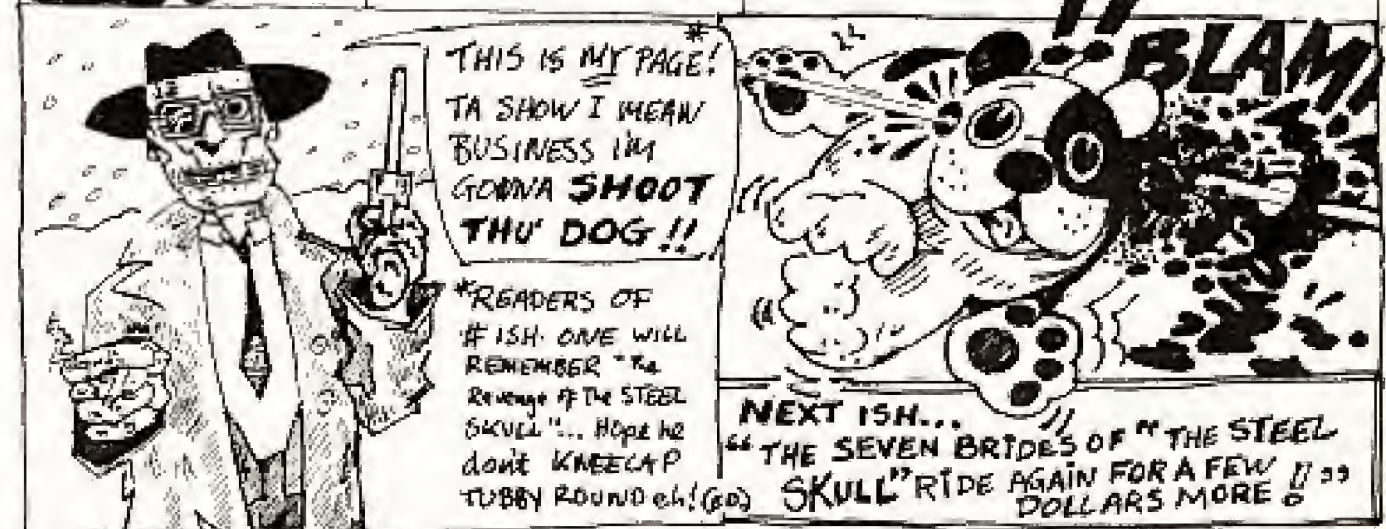 *
THIS IS MY PAGE!
TA SHOW I MEAN
BUSINESS I'M
GONNA SHOOT
THU' DOG!!
*READERS OF
# ISH. ONE WILL
REMEMBER "The
Revenge of The STEEL
SKULL"... Hope he
don't KNEECAP
TUBBY ROUND eh! (ED)
!!
BLAM!
NEXT ISH...
"THE SEVEN BRIDES OF "THE STEEL
SKULL" RIDE AGAIN FOR A FEW
DOLLARS MORE!!"